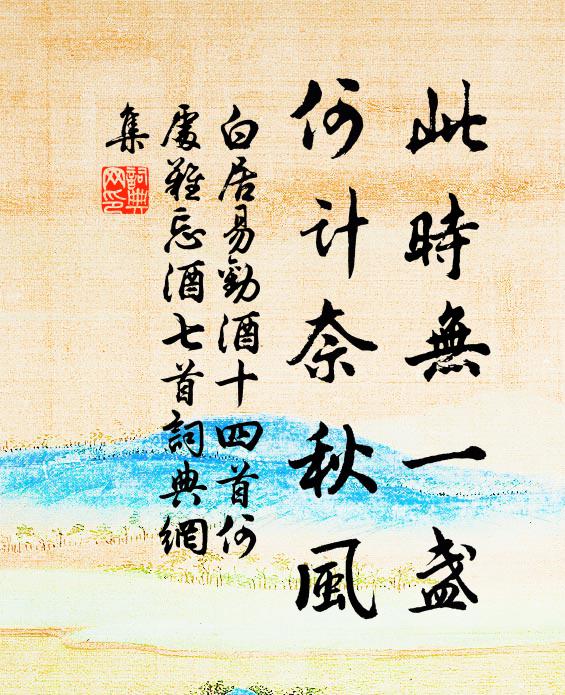 此時無一盞
何计奈秋風
白居易勸酒十四首何
處難忘酒七首詞典網
集
詞典
网印